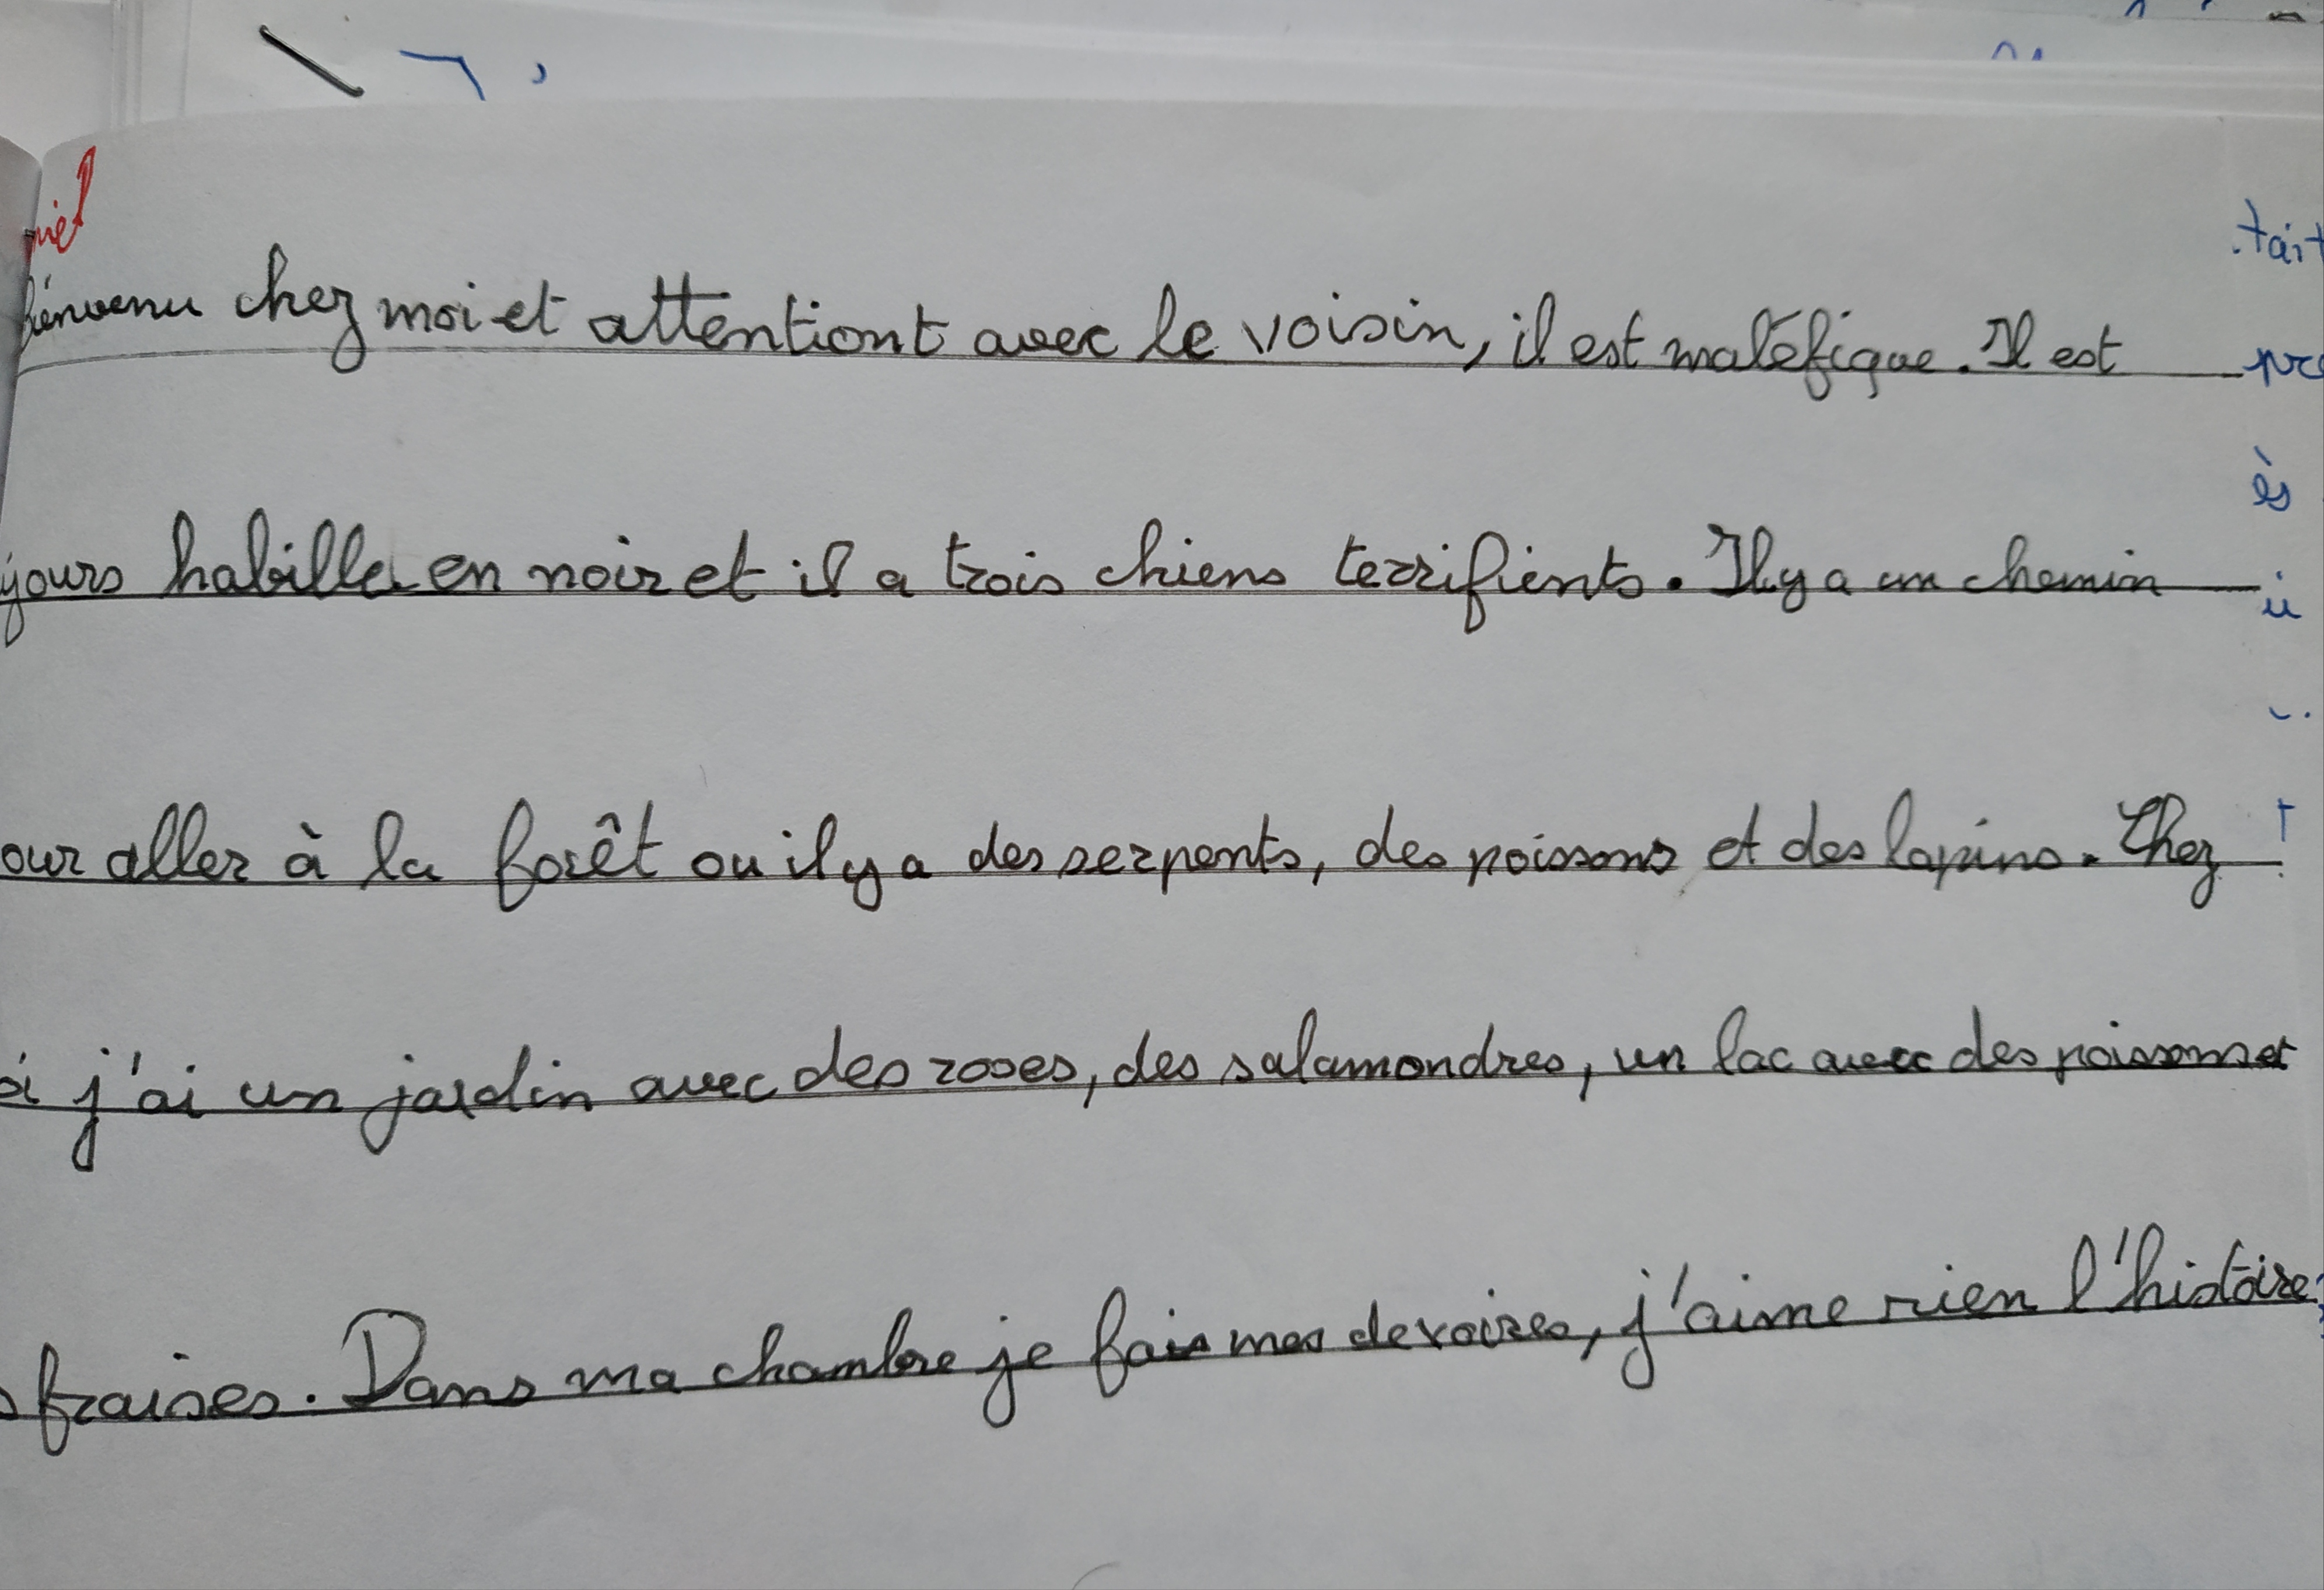 niel
bienvenu chez moi et attentiont avec le voisin, il est maléfique. Il est
jours habiller en noir et il a trois chiens terrifients. Il y a un chemin
our aller à la forêt ou il y a des serpents, des poissons et des lapins. Chez
oi j'ai un jardin avec des roses, des salamondres, un lac avec des poissons et
s fraises. Dans ma chambre je fais mes devoires, j'aime rien l'histoire
tait
pre
ès